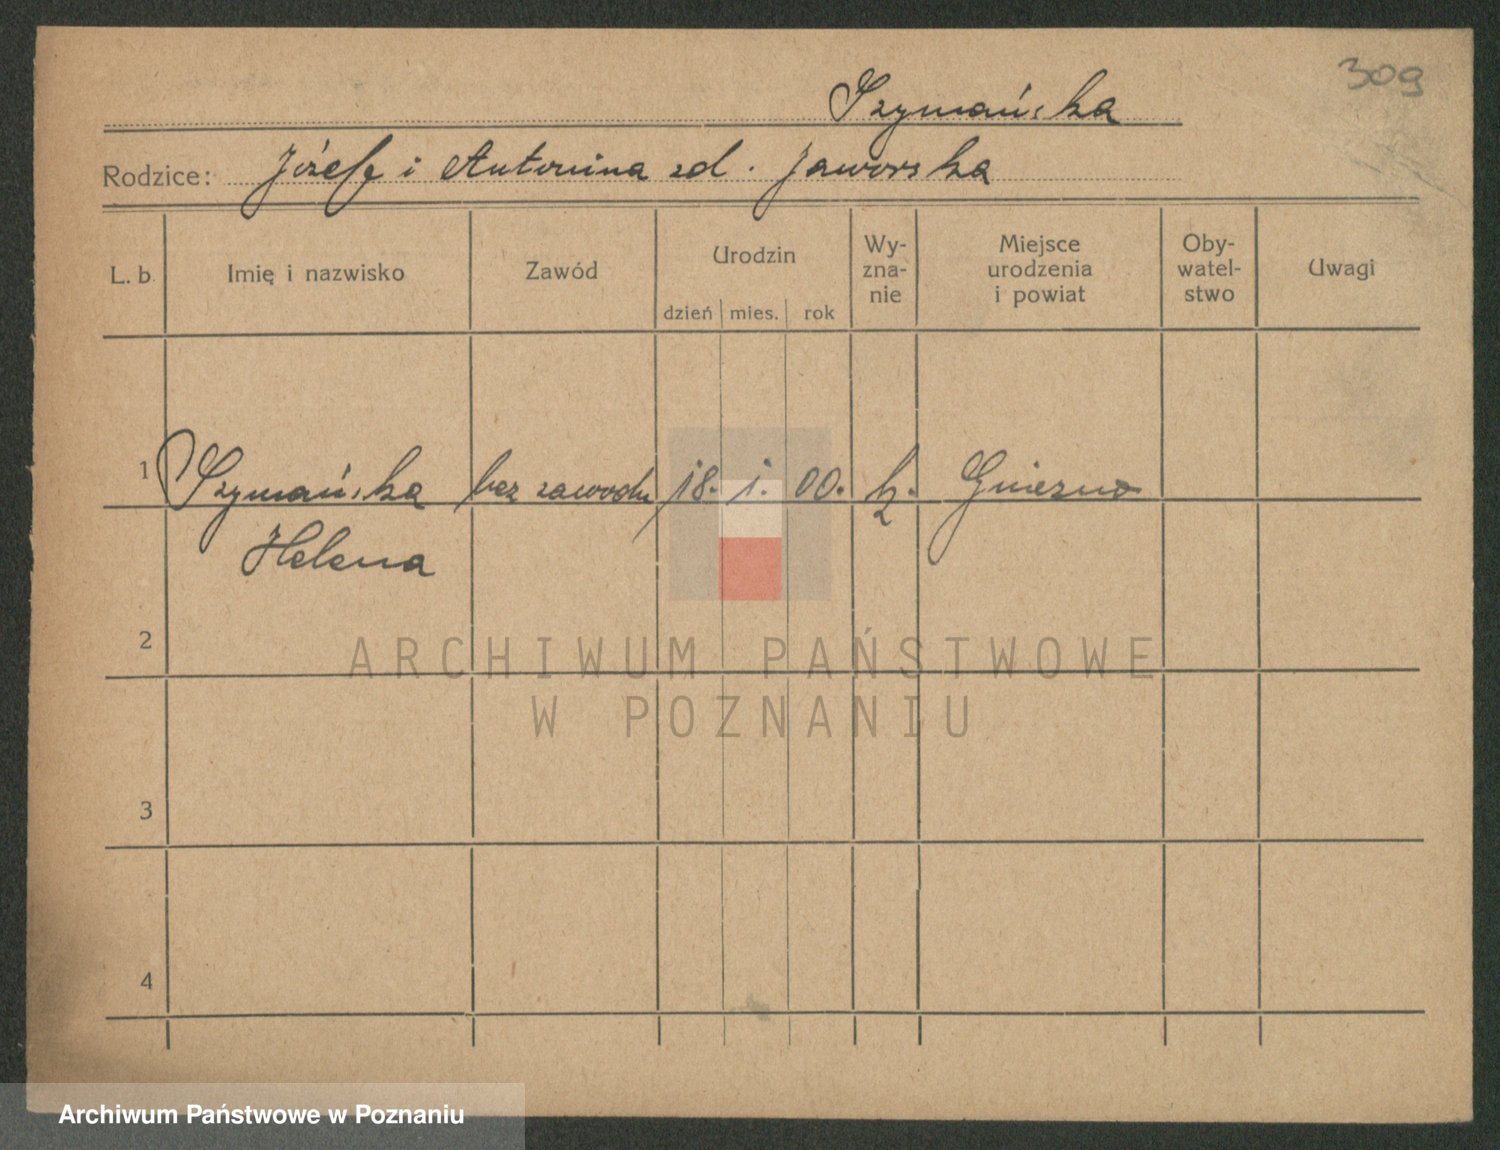 309
Szymańska
Rodzice: Józef i Antonina zd. Jaworska
L. b. Imię i nazwisko Zawód Urodzin dzień mies. rok Wy-zna-nie Miejsce urodzenia i powiat Oby-watel-stwo Uwagi
1 Szymańska bez zawodu 18. 1. 00. k. Gniezno
Helena
2
ARCHIWUM PAŃSTWOWE
W POZNANIU
3
4
Archiwum Państwowe w Poznaniu